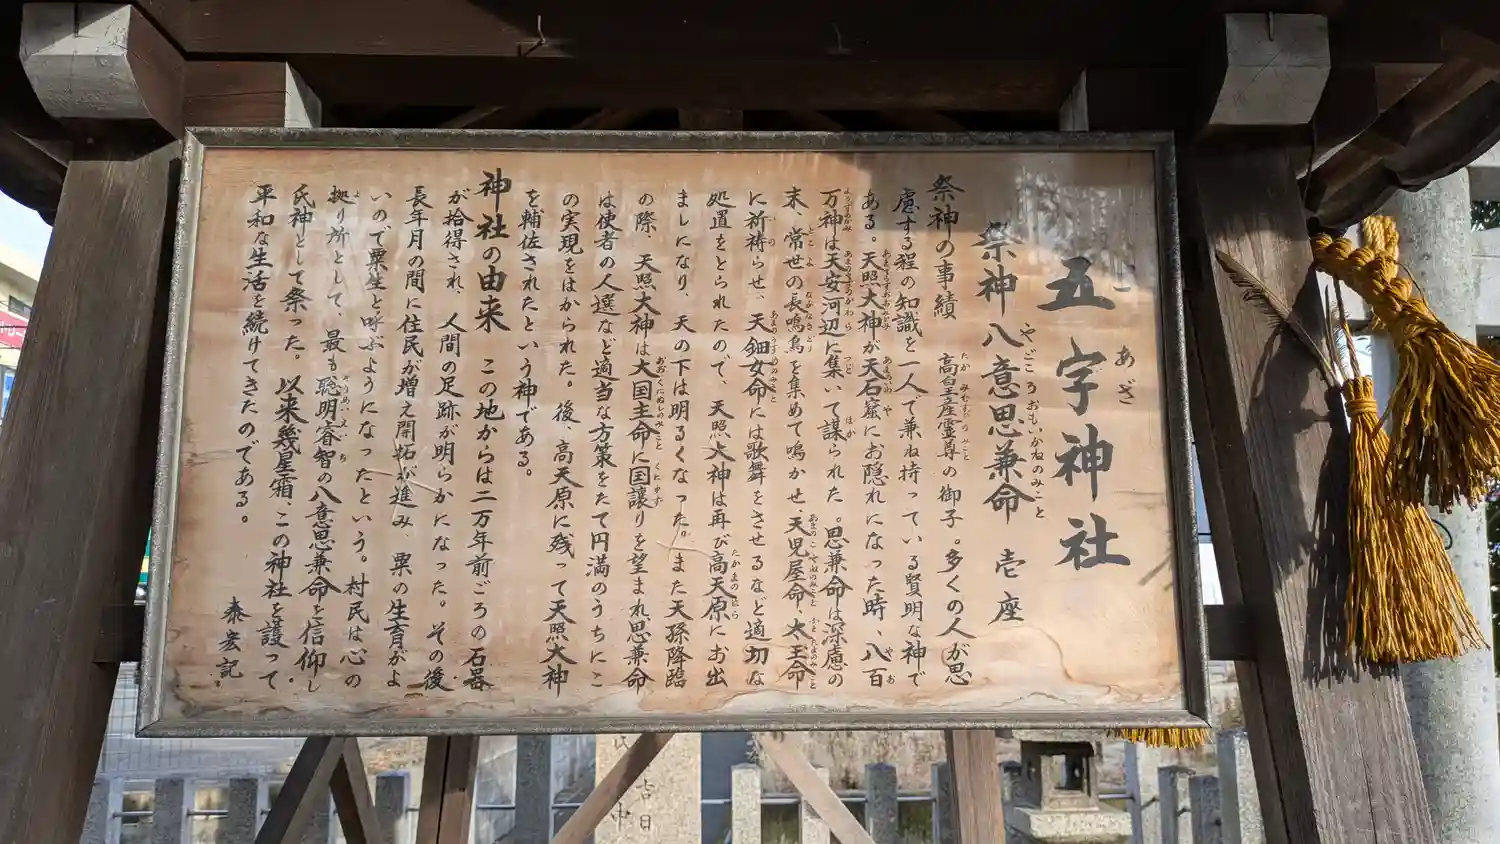 五字神社
祭神 八意思兼命 壱座
祭神の事績 高皇産霊尊の御子。多くの人が思
慮する程の知識を一人で兼ね持っている賢明な神で
ある。天照大神が天石窟にお隠れになった時、八百
万神は天安河辺に集いて謀られた。思兼命は深慮の
末、常世の長鳴鳥を集めて鳴かせ、天児屋命、太玉命
に祈祷らせ、天鈿女命には歌舞をさせるなど適切な
処置をとられたので、天照大神は再び高天原にお出
ましになり、天の下は明るくなった。また天孫降臨
の際、天照大神は大国主命に国譲りを望まれ、思兼命
は使者の人選など適当な方策をたて円満のうちにこ
の実現をはかられた。後、高天原に残って天照大神
を輔佐されたという神である。
神社の由来 この地からは二万年前ごろの石器
が拾得され、人間の足跡が明らかになった。その後
長年月の間に住民が増え開拓が進み、栗の生育がよ
いので栗生と呼ぶようになったという。村民は心の
拠り所として、最も聡明睿智の八意思兼命を信仰し
氏神として祭った。以来幾星霜、この神社を護って
平和な生活を続けてきたのである。
泰宏記
吉日